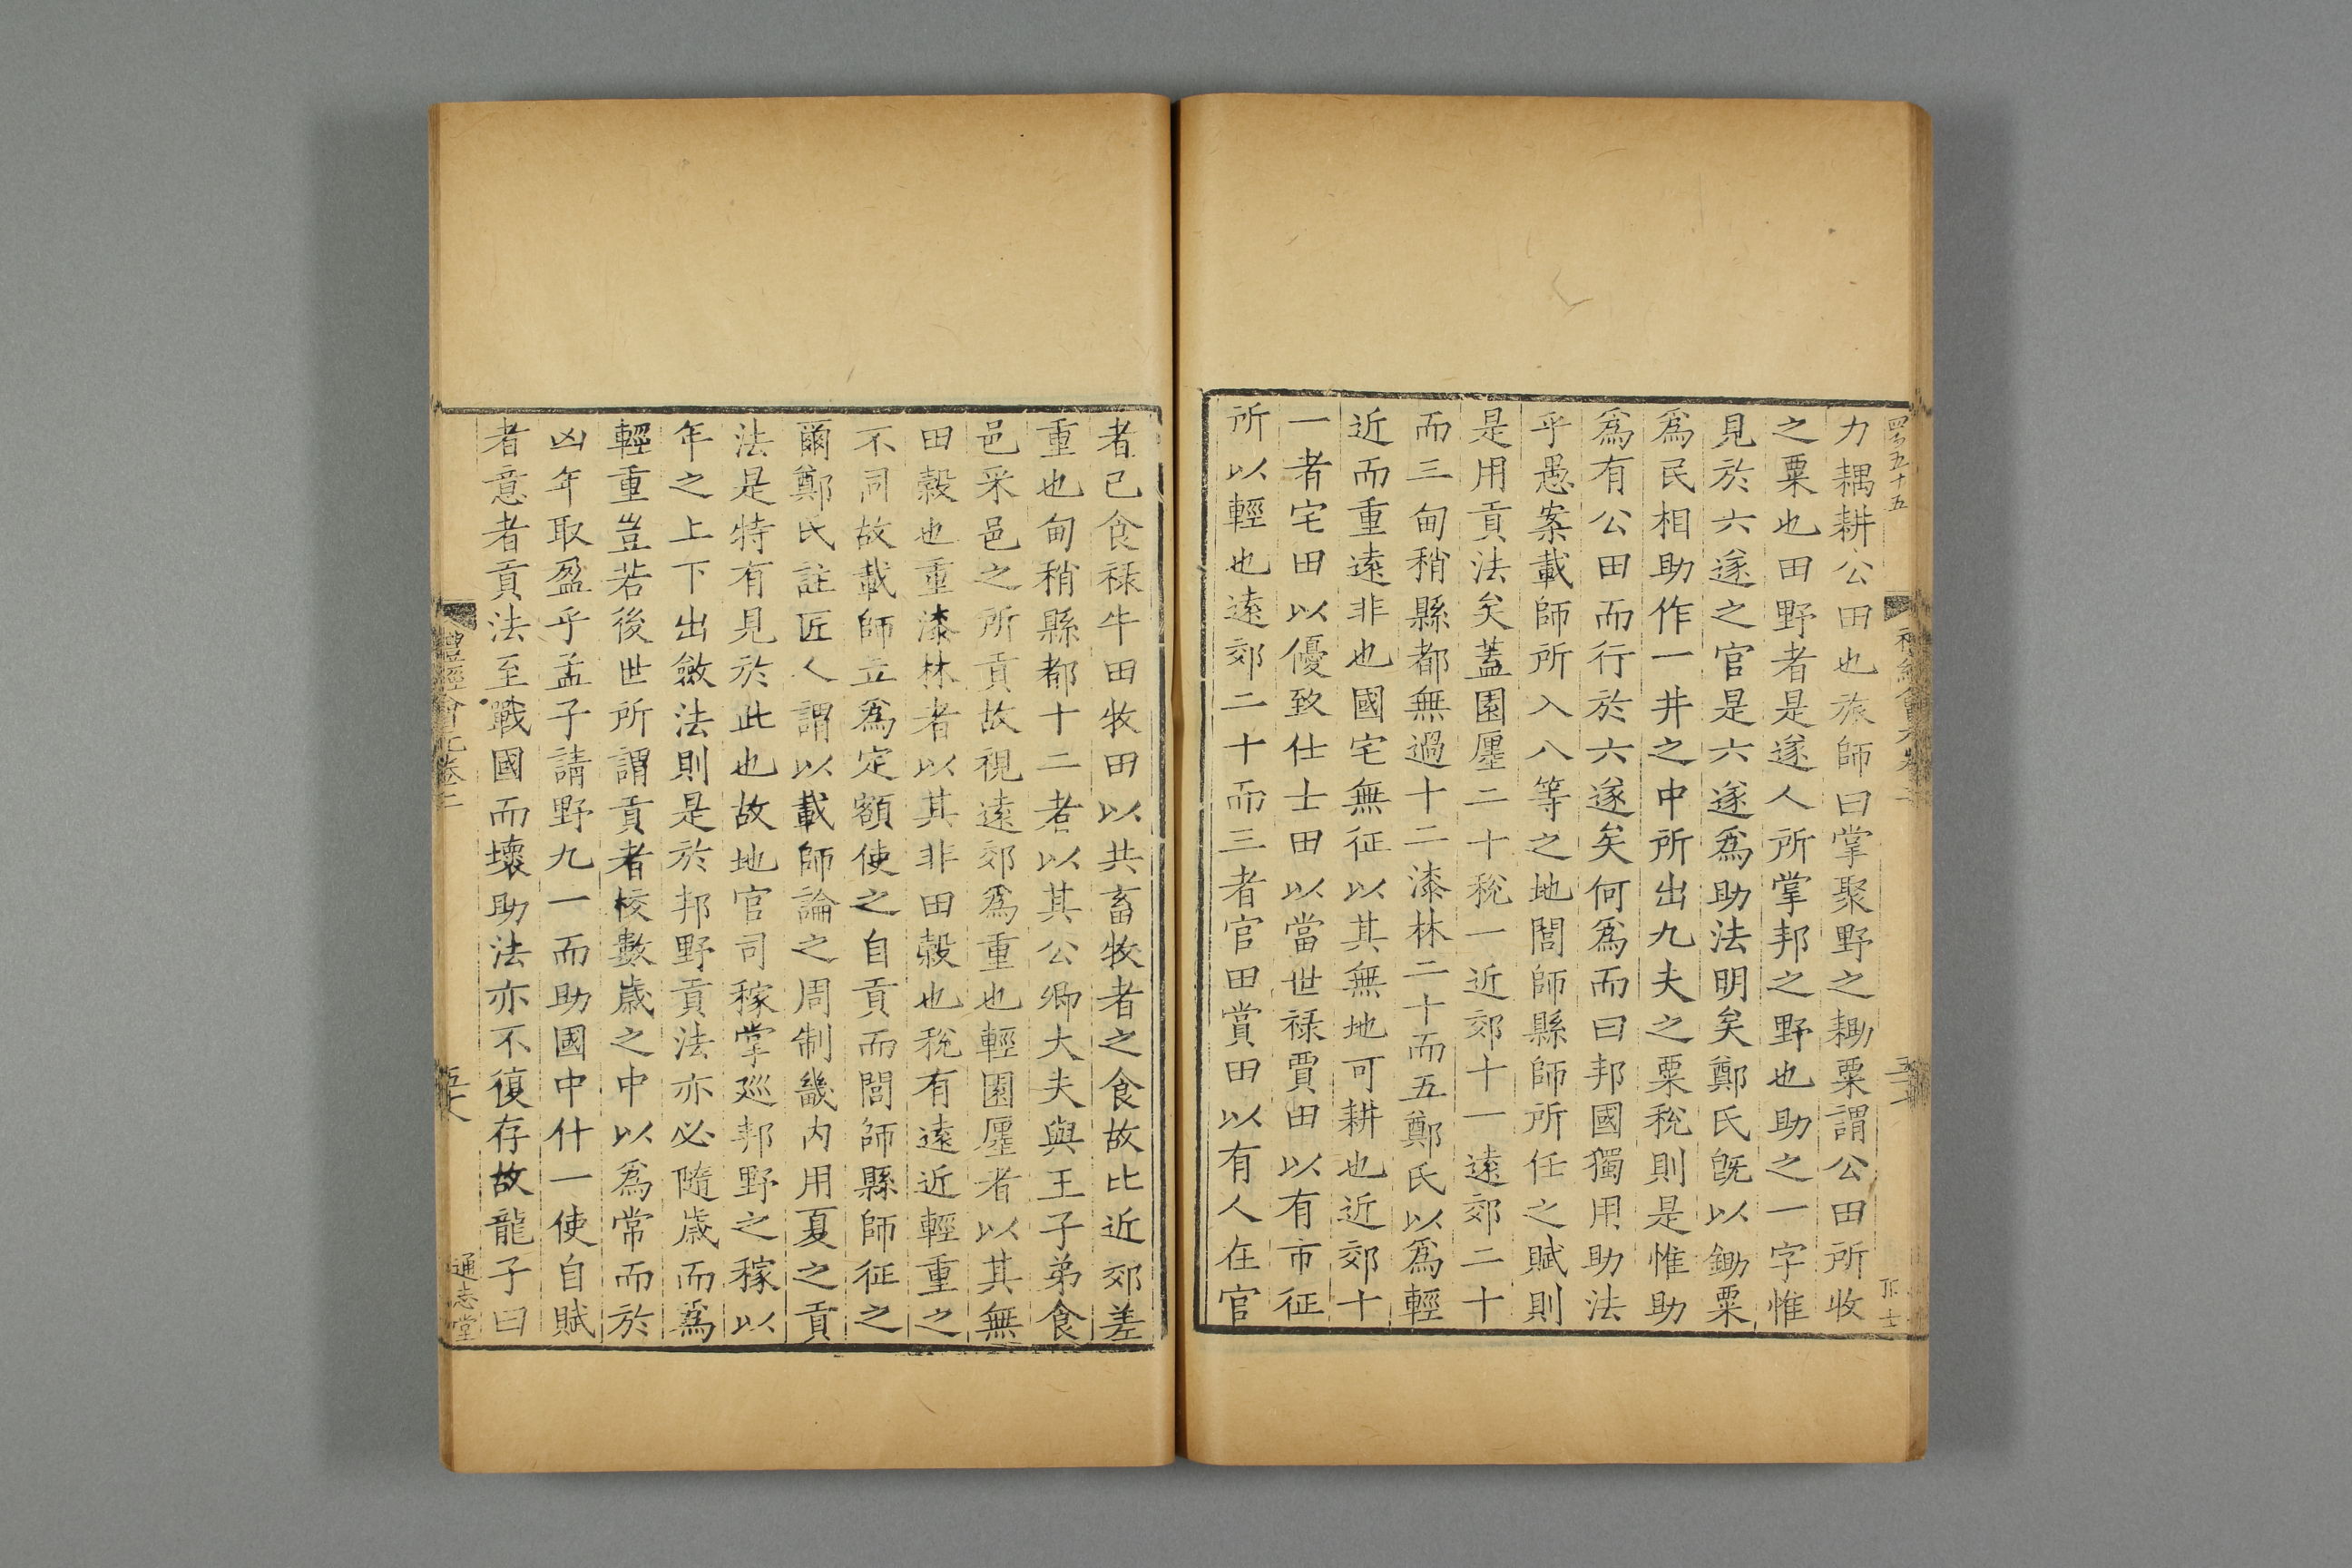 力耦耕公田也旅師曰掌聚野之耡粟謂公田所收
之粟也田野者是遂人所掌邦之野也助之一字惟
見於六遂之官是六遂爲助法明矣鄭氏旣以鋤粟
爲民相助作一井之中所出九夫之粟稅則是惟助
爲有公田而行於六遂矣何爲而曰邦國獨用助法
乎愚案載師所入八等之地閭師縣師所任之賦則
是用貢法矣蓋園廛二十稅一近郊十一遠郊二十
而三甸稍縣都無過十二漆林二十而五鄭氏以爲輕
近而重遠非也國宅無征以其無地可耕也近郊十
一者宅田以優致仕士田以當世祿賈田以有市征
所以輕也遠郊二十而三者官田賞田以有人在官
者已食祿牛田牧田以共畜牧者之食故比近郊差
重也甸稍縣都十二者以其公卿大夫與王子弟食
邑采邑之所貢故視遠郊爲重也輕園廛者以其無
田穀也重漆林者以其非田穀也稅有遠近輕重之
不同故載師立爲定額使之自貢而閭師縣師征之
爾鄭氏註匠人謂以載師論之周制畿内用夏之貢
法是特有見於此也故地官司稼掌巡邦野之稼以
年之上下出斂法則是於邦野貢法亦必隨歲而爲
輕重豈若後世所謂貢者校數歲之中以爲常而於
凶年取盈乎孟子請野九一而助國中什一使自賦
者意者貢法至戰國而壞助法亦不復存故龍子曰
禮經會元卷二
通志堂